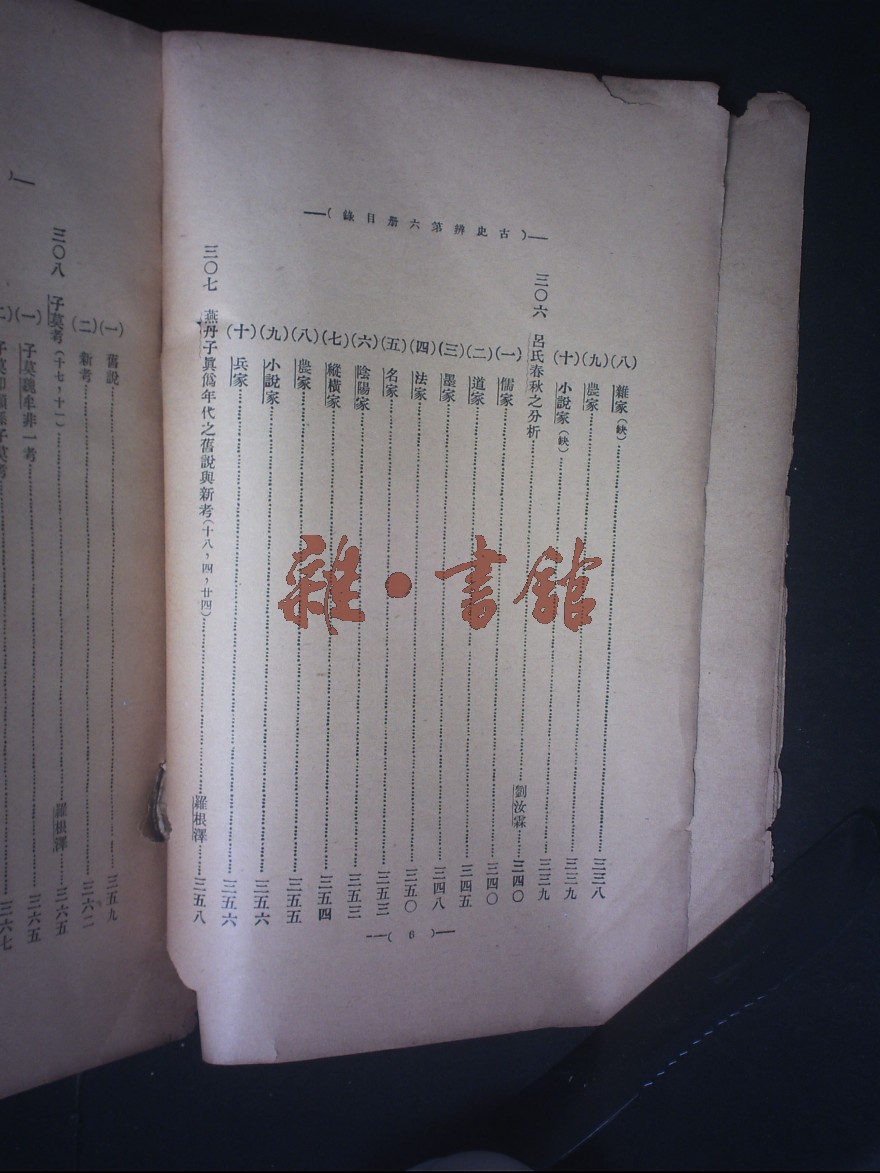 —(古史辨第六册目錄)—
(八)雜家(缺)……三三八
(九)農家……三三九
(十)小說家(缺)……三三九
三〇六 呂氏春秋之分析……劉汝霖……三四〇
(一)儒家……三四〇
(二)道家……三四五
(三)墨家……三四八
(四)法家……三五〇
(五)名家……三五三
(六)陰陽家……三五三
(七)縱橫家……三五四
(八)農家……三五五
(九)小說家……三五六
(十)兵家……三五六
三〇七 燕丹子眞僞年代之舊說與新考(十八,四,廿四)……羅根澤……三五八
—( 6 )—
(一)舊說……三五九
(二)新考……三六二
三〇八 子莫考(十七,十一)……羅根澤……三六五
(一)子莫魏牟非一考……三六五
子莫即顓孫子莫考……三六七
雜·書館